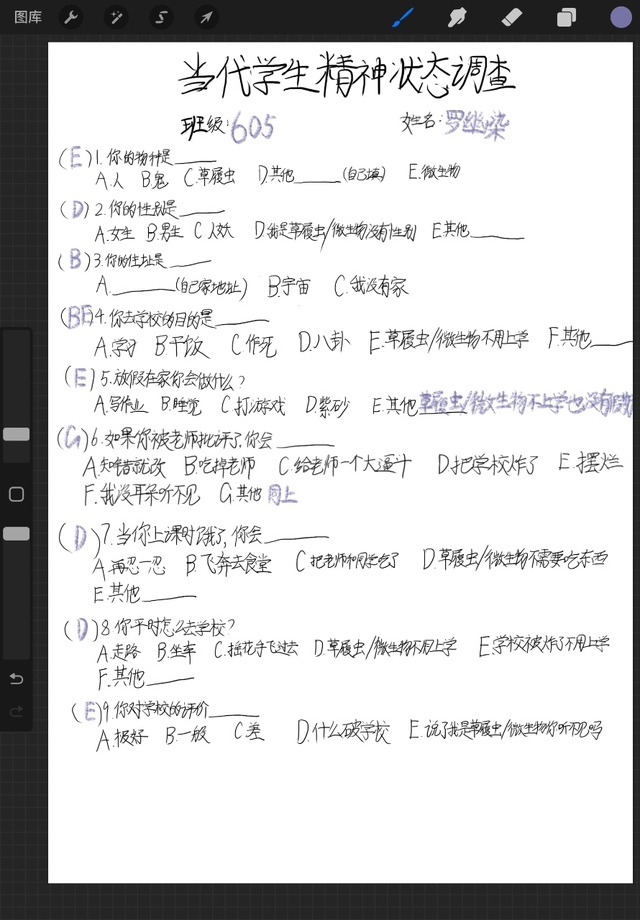 图库
当代学生精神状态调查
班级:605 姓名:罗继染
(E)1.你的物种是____
A.人 B.鬼 C.草履虫 D.其他____(自己填) E.微生物
(D)2.你的性别是____
A.女生 B.男生 C.人妖 D.我是草履虫/微生物没有性别 E.其他____
(B)3.你的住址是____
A.____(自己家地址) B.宇宙 C.我没有家
(BE)4.你去学校的目的是____
A.学习 B.干饭 C.作死 D.八卦 E.草履虫/微生物不用上学 F.其他____
(E)5.放假在家你会做什么?
A.写作业 B.睡觉 C.打游戏 D.紫砂 E.其他草履虫/微生物不上学也没有假期
(G)6.如果你被老师批评了,你会____
A.知错就改 B.吃掉老师 C.给老师一个大逼斗 D.把学校炸了 E.摆烂
F.我没耳朵听不见 G.其他同上
(D)7.当你上课时饿了,你会____
A.再忍一忍 B.飞奔去食堂 C.把老师和同学吃了 D.草履虫/微生物不需要吃东西
E.其他____
(D)8.你平时怎么去学校?
A.走路 B.坐车 C.摇花手飞过去 D.草履虫/微生物不用上学 E.学校被炸了不用上学
F.其他____
(E)9.你对学校的评价____
A.极好 B.一般 C.差 D.什么破学校 E.说了我是草履虫/微生物你听不见吗